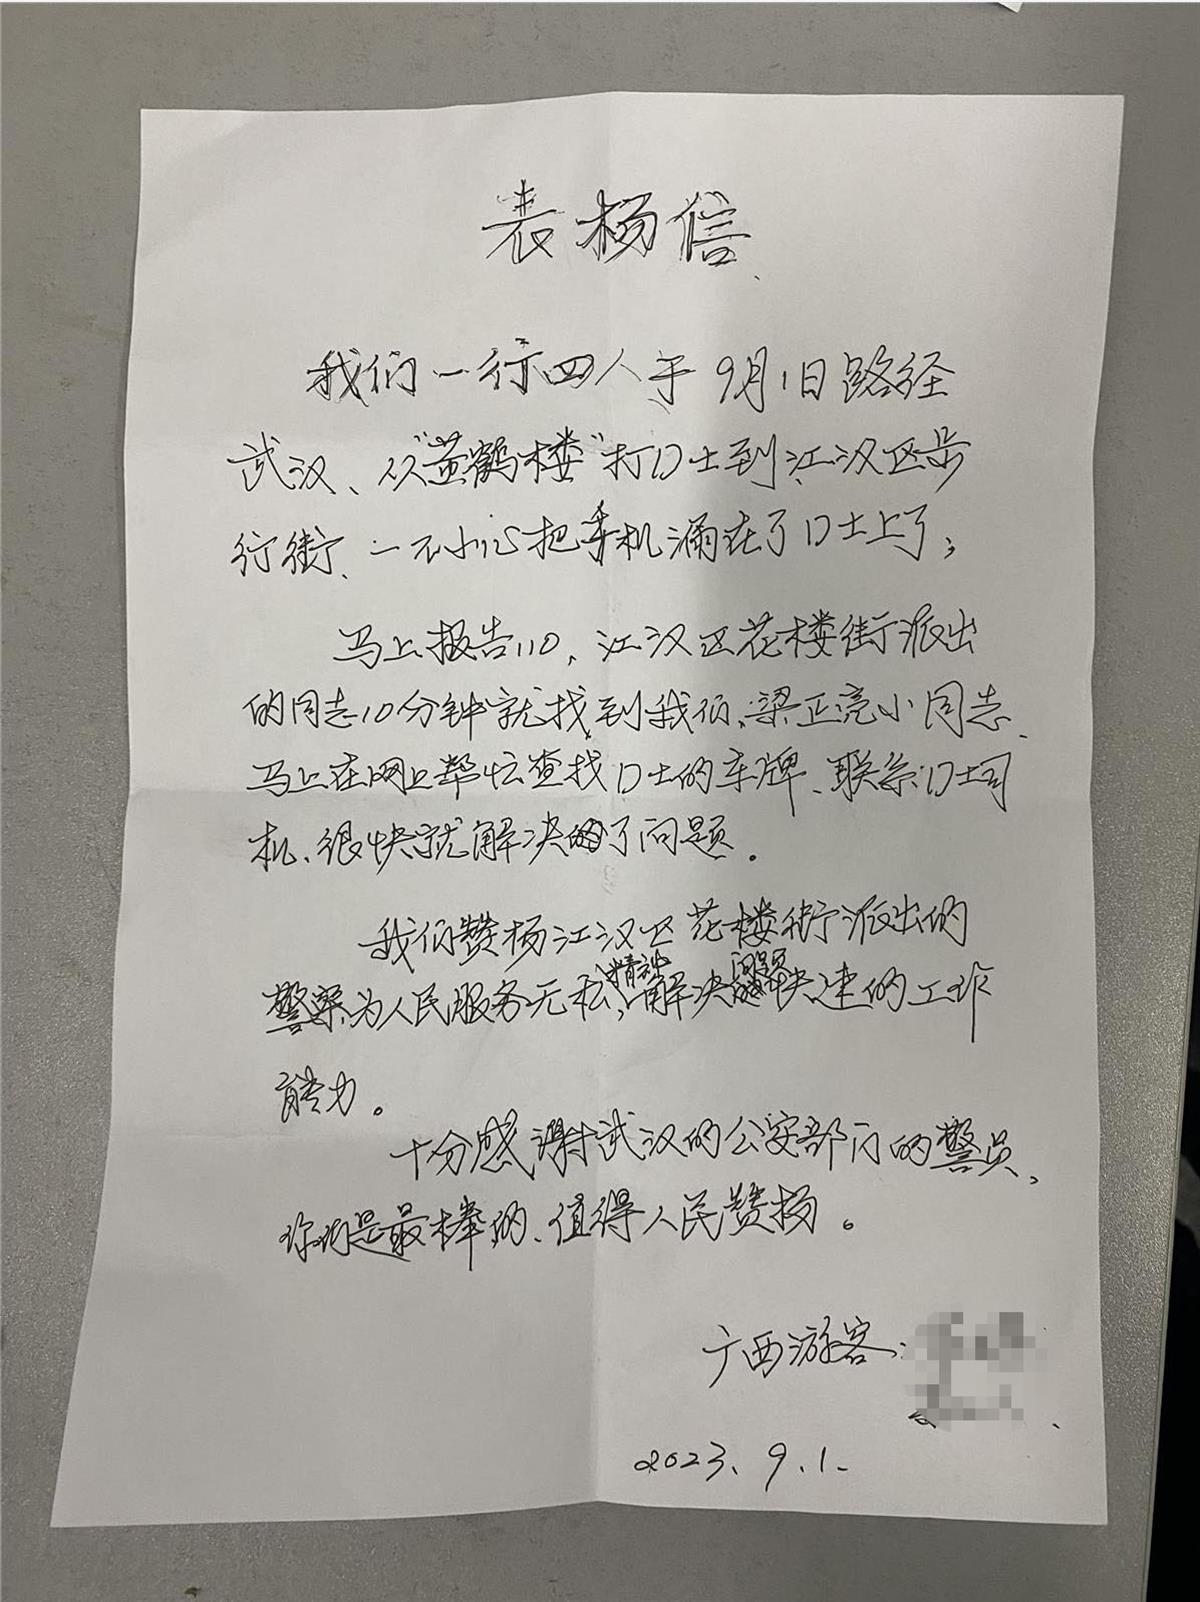 表杨信
我们一行四人于9月1日路径
武汉、从“黄鹤楼”打口士到江汉区步
行街、一不小心把手机漏在了口士上了，
马上报告110，江汉区花楼街派出
的同志10分钟就找到我们、梁正亮小同志、
马上在网上帮忙查找口士的车牌、联系口士司
机、很快就解决了问题。
我们赞杨江汉区花楼街派出的
警察为人民服务无私精神，解决问题快速的工作
能力。
十分感谢武汉的公安部门的警员、
你们是最棒的、值得人民赞扬。
广西游客：
2023.9.1.